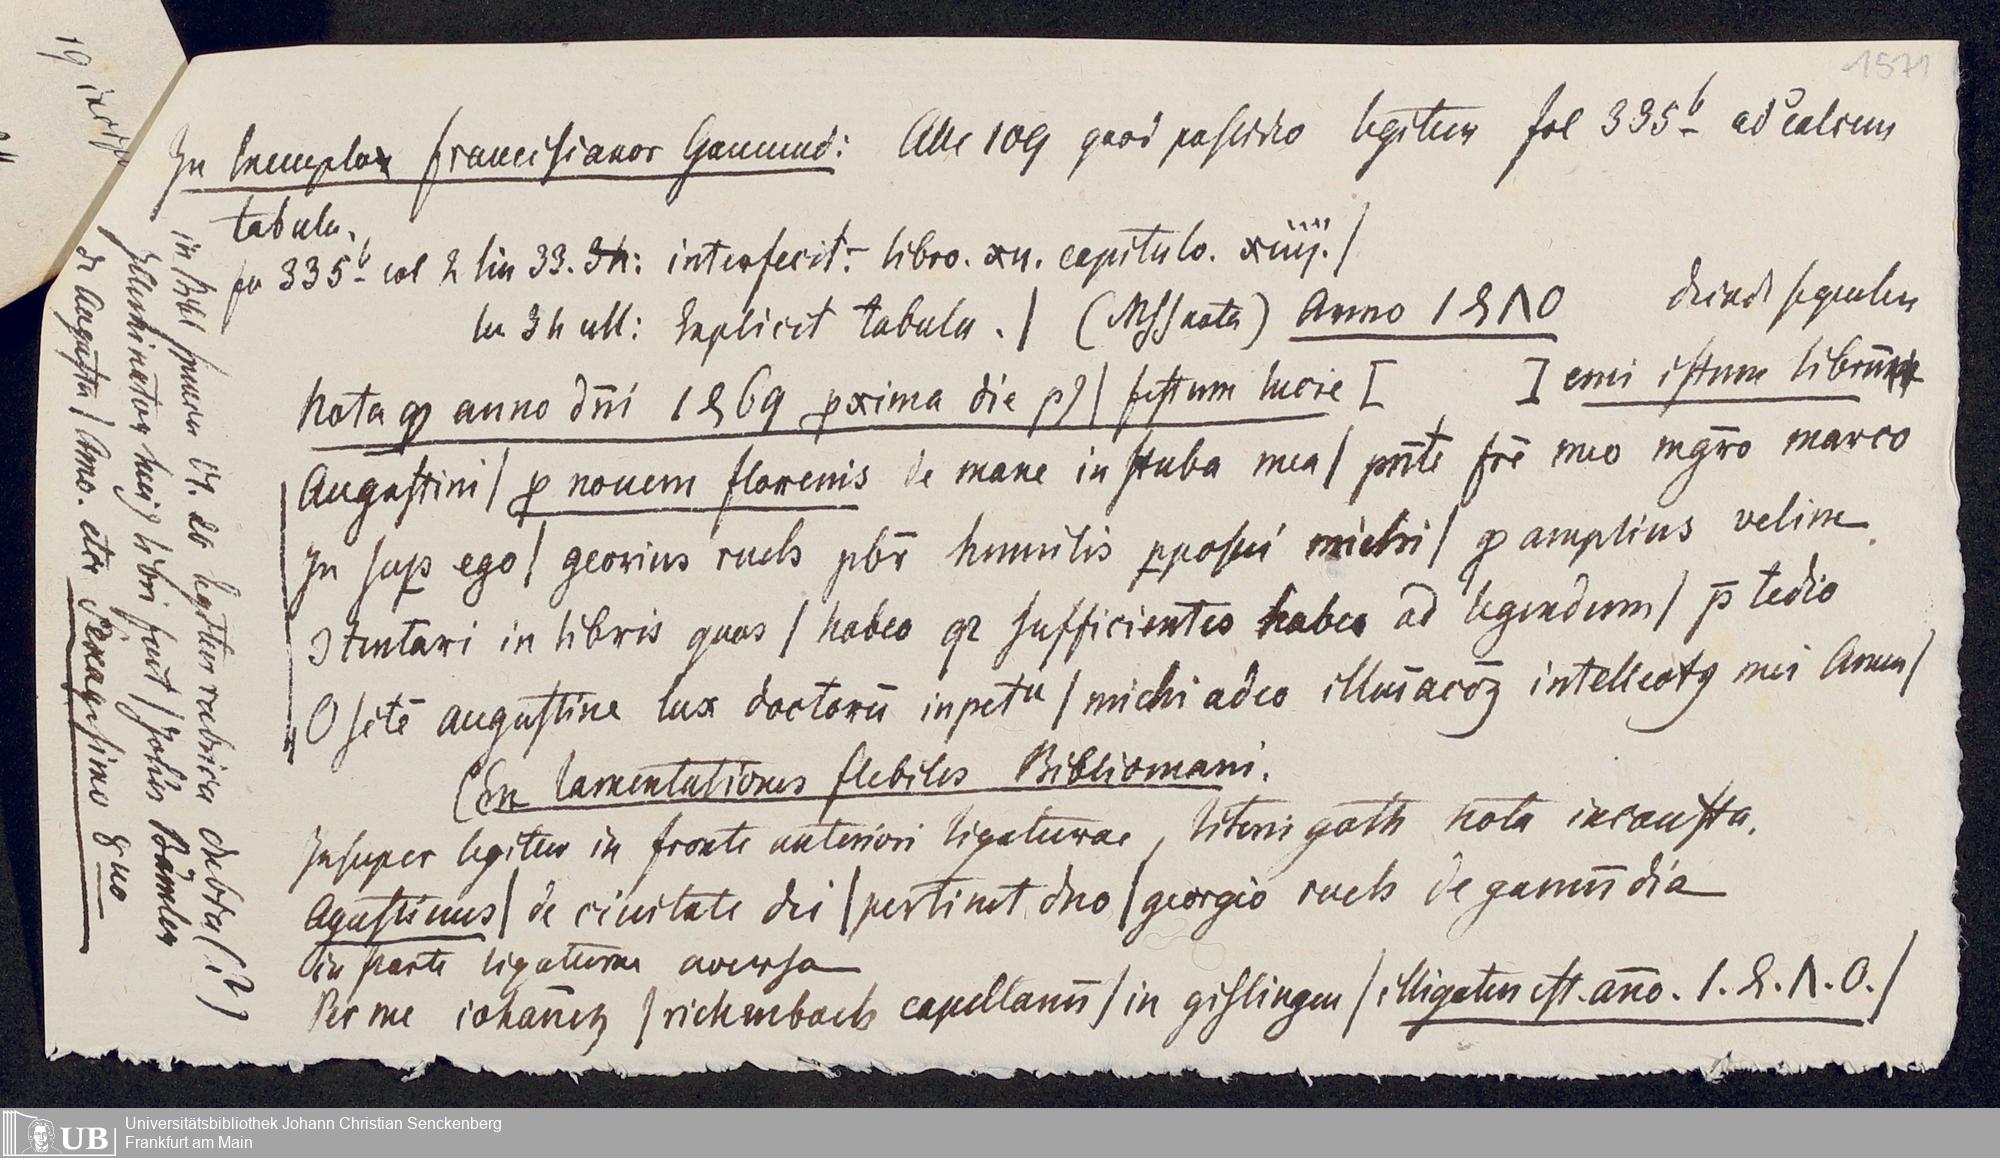 1571
In Exemplar franciscanor Gamund: Abc 109 quod postidio legitur fol 335b ad calcem
tabulu.
fo 335b col 2 lin 33. 34: interfecit. libro. xu. capitulo. xiiij. /
lin 34 ult: Explicit tabula . / (MSS nota) Anno 1470 deinde sequentu
Nota qp anno dñi 1469 pxima die p9 / festum lucie [ ] emi istum librū
Augustini / p nouem florenis de mane in stuba mea / pn̄te fr̄e meo mgr̄o marco
In sup ego / georius ruch pbr̄ humilis pposui michi / qp amplius velim
tentari in libris quos / habeo qz sufficientes habeo ad legendum / p̄ tedio
O sctē augustine lux doctorū inpetu / michi adeo illuīacoz intellectq mei Amen /
(En lamentationes flebiles Bibliomani.
Insuper legitur in fronte anteriori ligaturae, literis goth nota incausta.
Agustinus / de ciuitate dei / pertinet dno / georgio ruch de gamūdia
in parte ligaturae aversa
Per me iohan̄ez / richenbach capellanū / in gislingen / illigatus est. an̄o. 1.4.7.0. /
in fol
legitur rubrica
Illuminator huiq libri fuit / Johēs Bämler
de Augusta / Anno. etc Sexagesimo 8uo
19 incip